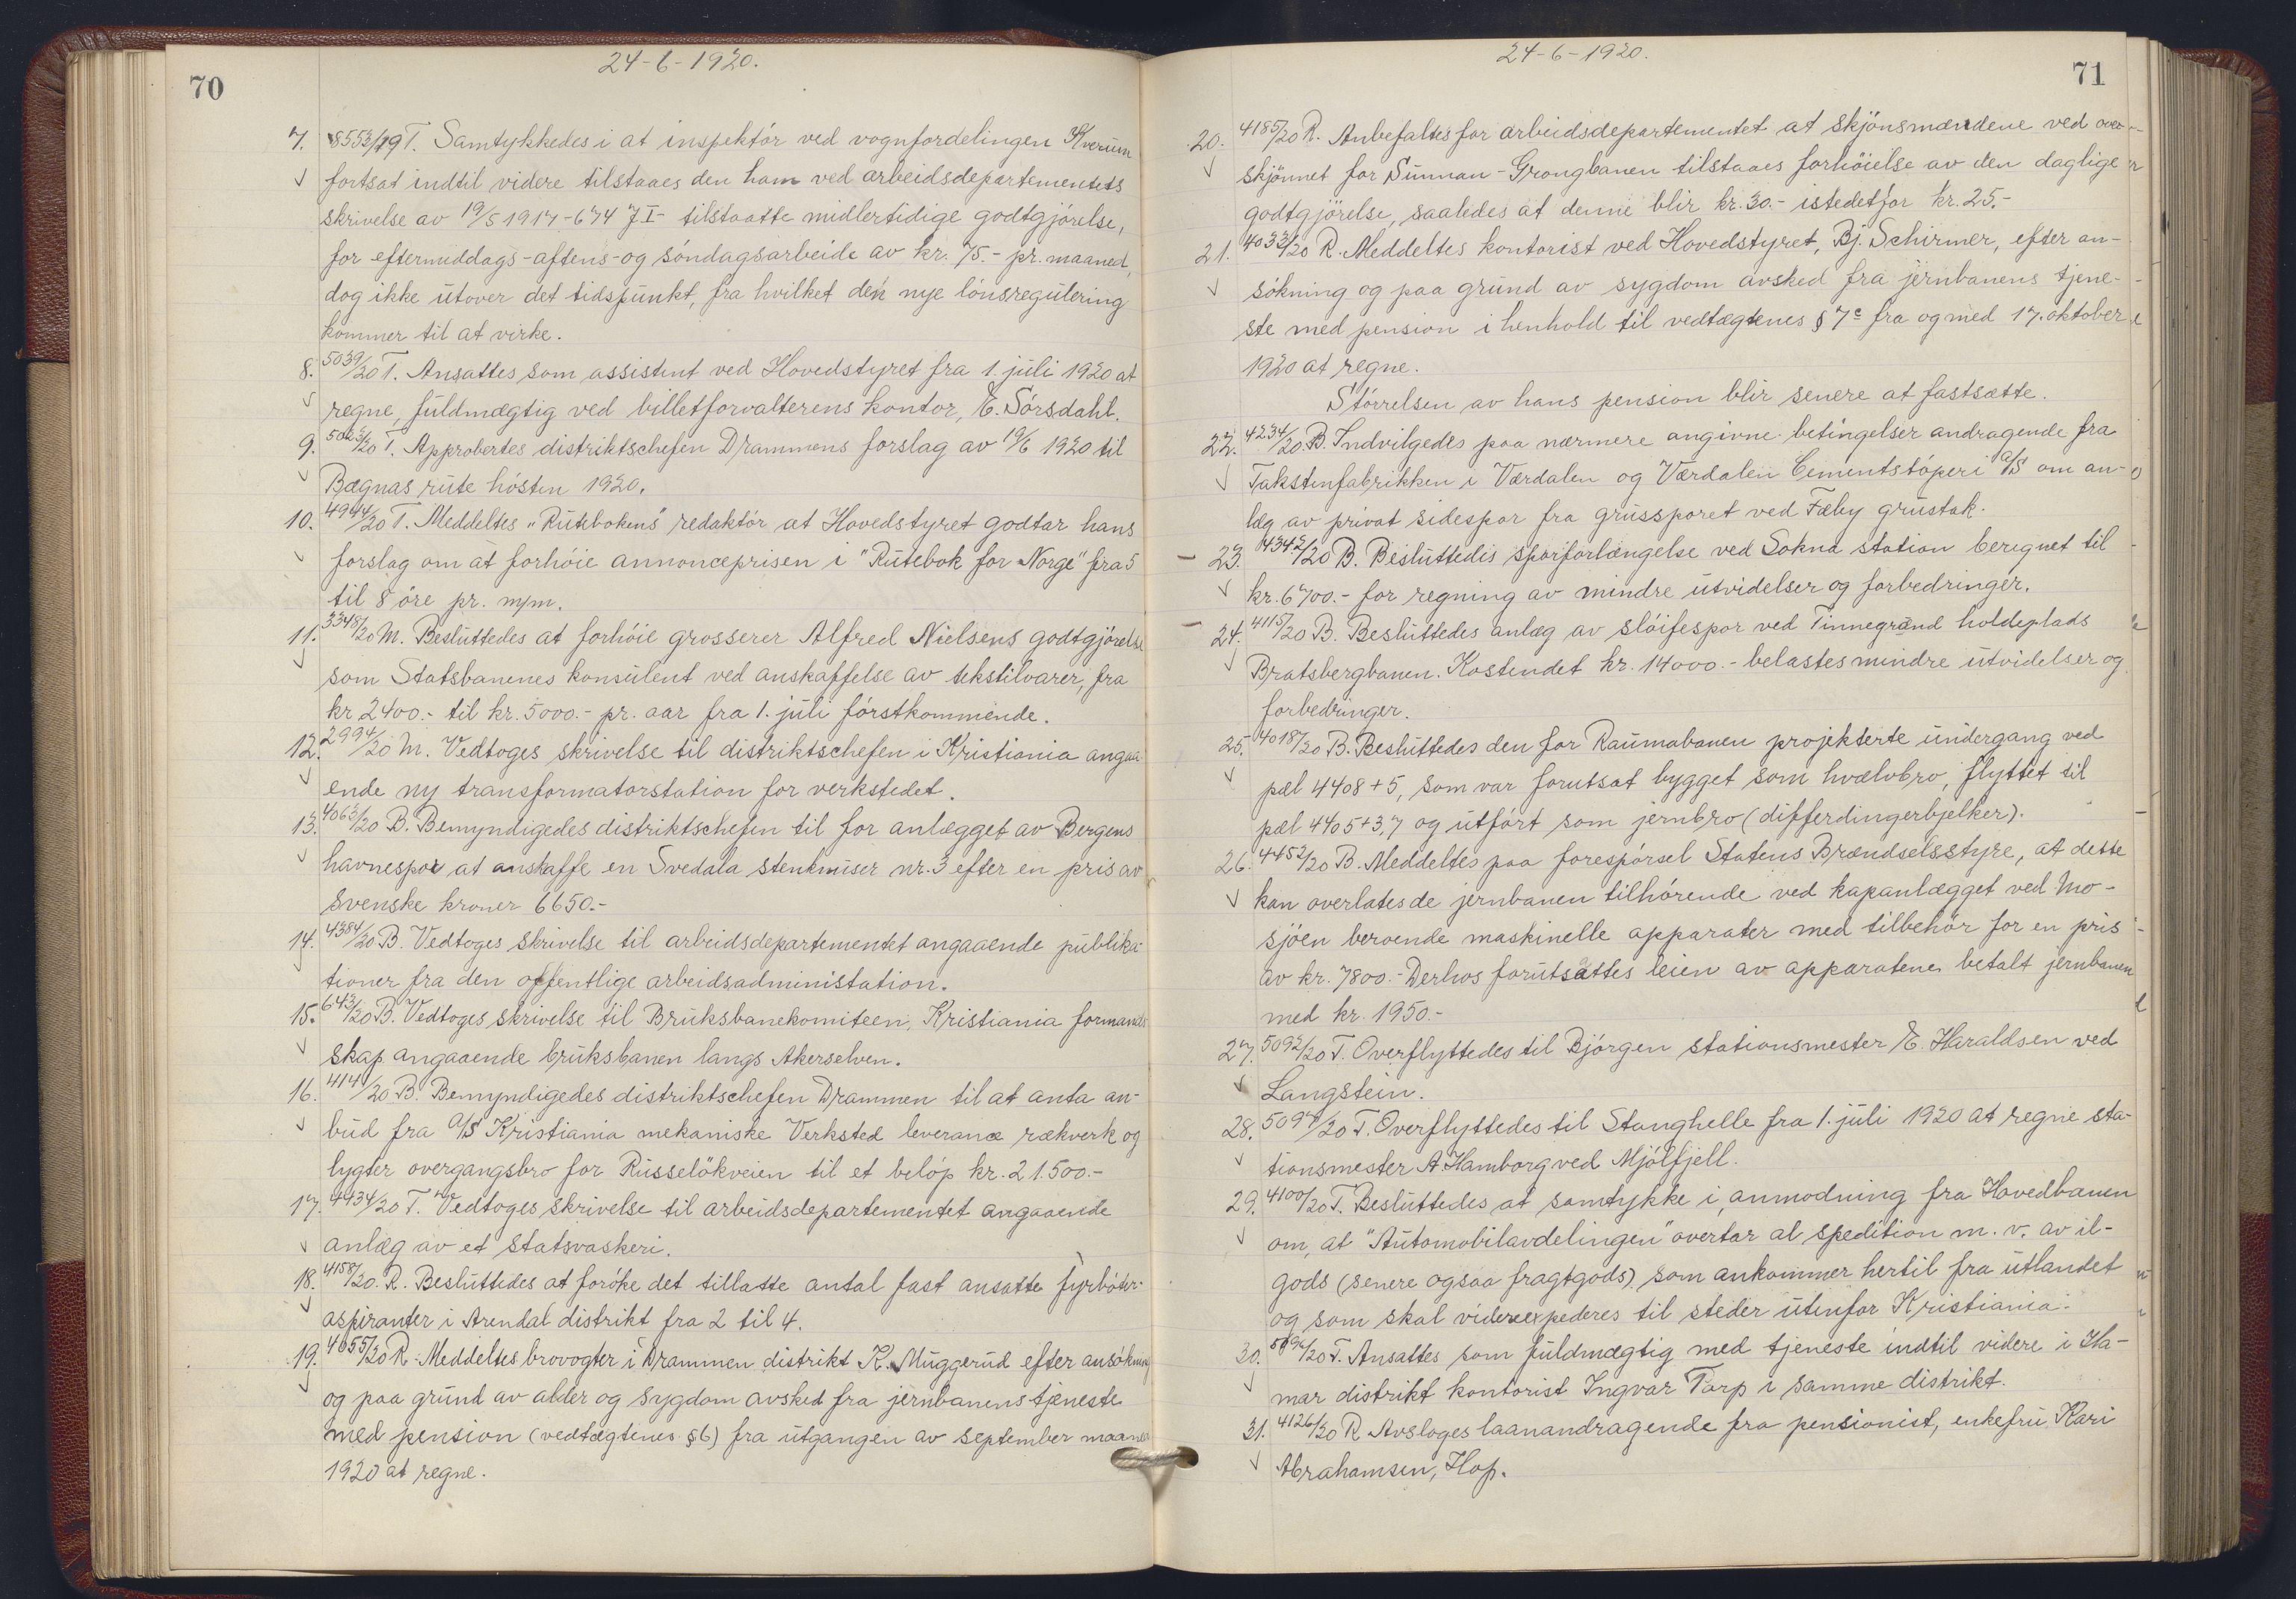 24-6-1920.
70
7. 8553/19 T. Samtykkedes i at inspektör ved vognfordelingen Kverum
fortsat indtil videre tilstaaes den ham ved arbeidsdepartementets
skrivelse av 19/5 1917-674 J I- tilstaatte midlertidige godtgjörelse,
for eftermiddags-aftens-og söndagsarbeide av kr. 75.- pr. maaned,
dog ikke utover det tidspunkt, fra hvilket den nye lönsregulering
kommer til at virke.
8. 5039/20 T. Ansattes som assistent ved Hovedstyret fra 1. juli 1920 at
regne, fuldmægtig ved billetforvalterens kontor, E. Sörsdahl.
9. 5023/20 T. Approbertes distriktschefen Drammens forslag av 19/6 1920 til
Bægnas rute hösten 1920.
10. 4944/20 T. Meddeltes "Rutebokens" redaktör at Hovedstyret godtar hans
forslag om at forhöie annonceprisen i "Rutebok for Norge" fra 5
til 8 öre pr. m/m.
11. 3348/20 M. Besluttedes at forhöie grosserer Alfred Nielsens godtgjörelse
som Statsbanenes konsulent ved anskaffelse av tekstilvarer, fra
kr 2400.- til kr. 5000.- pr. aar fra 1. juli förstkommende.
12. 2994/20 M. Vedtoges skrivelse til distriktschefen i Kristiania angaa-
ende ny transformatorstation for verkstedet.
13. 4063/20 B. Bemyndigedes distriktschefen til for anlægget av Bergens
havnespor at anskaffe en Svedala stenknuser nr. 3 efter en pris av
svenske kroner 6650.-
14. 4384/20 B. Vedtoges skrivelse til arbeidsdepartementet angaaende publika-
tioner fra den offentlige arbeidsadministation.
15. 643/20 B. Vedtoges skrivelse til Bruksbanekomiteen, Kristiania formand-
skap angaaende bruksbanen langs Akerselven.
16. 414/20 B. Bemyndigedes distriktschefen Drammen til at anta an-
bud fra A/S Kristiania mekaniske Verksted leverance rækverk og
lygter overgangsbro for Russelökveien til et belöp kr. 21.500.-
17. 4434/20 T. Vedtoges skrivelse til arbeidsdepartementet angaaende
anlæg av et statsvaskeri.
18. 4158/20. R. Besluttedes at foröke det tillatte antal fast ansatte fyrböter-
aspiranter i Arendal distrikt fra 2 til 4.
19. 4655/20 R. Meddeltes brovogter i Drammen distrikt K. Muggerud efter ansökning
og paa grund av alder og sygdom avsked fra jernbanens tjeneste
med pension (vedtægtenes §6) fra utgangen av september maaned
1920 at regne.
24-6-1920.
71
20. 4185/20 R. Anbefaltes for arbeidsdepartementet at skjönsmændene ved over-
skjönnet for Sunnan-Grongbanen tilstaaes forhöielse av den daglige
godtgjörelse, saaledes at denne blir kr. 30.- istedetfor kr. 25.-
21. 4033/20 R. Meddeltes kontorist ved Hovedstyret, Bj. Schirmer, efter an-
sökning og paa grund av sygdom avsked fra jernbanens tjene-
ste med pension i henhold til vedtægtenes § 7c fra og med 17. oktober
1920 at regne.
Störrelsen av hans pension blir senere at fastsætte.
22. 4234/20. B. Indvilgedes paa nærmere angivne betingelser andragende fra
Takstenfabrikken i Værdalen og Værdalen Cementstöperi A/S om an-
læg av privat sidespor fra grussporet ved Fæby grustak.
23. 4342/20 B. Besluttedes sporforlængelse ved Sokna station beregnet til
kr. 6700.- for regning av mindre utvidelser og forbedringer.
24. 4115/20 B. Besluttedes anlæg av slöifespor ved Tinnegrend holdeplads
Bratsbergbanen. Kostendet kr. 14000.- belastes mindre utvidelser og
forbedringer.
25. 4018/20 B. Besluttedes den for Raumabanen projekterte undergang ved
pæl 4408+5, som var forutsat bygget som hvælvbro, flyttet til
pæl 4405+3,7 og utfört som jernbro (differdingerbjelker).
26. 4452/20 B. Meddeltes paa forespörsel Statens Brændselsstyre, at dette
kan overlates de jernbanen tilhörende ved kapanlægget ved Mo-
sjöen beroende maskinelle apparater med tilbehör for en pris
av kr. 7800.- Derhos forutsattes leien av apparatene betalt jernbanen
med kr. 1950.-
27. 5092/20 T. Overflyttedes til Björgen stationsmester E. Haraldsen ved
Langstein.
28. 5097/20 T. Overflyttedes til Stanghelle fra 1. juli 1920 at regne sta-
tionsmester A. Hamborg ved Mjölfjell.
29. 4100/20 T. Besluttedes at samtykke i, anmodning fra Hovedbanen
om, at "Automobilavdelingen" overtar al spedition m. v. av il-
gods (senere ogsaa fragtgods) som ankommer hertil fra utlandet
og som skal videreexpederes til steder utenfor Kristiania.
30. T. Ansattes som fuldmægtig med tjeneste indtil videre i Ha-
mar distrikt kontorist Ingvar Torp i samme distrikt.
31. 4126/20 R Avsloges laanandragende fra pensionist, enkefru Kari
Abrahamsen, Hop.